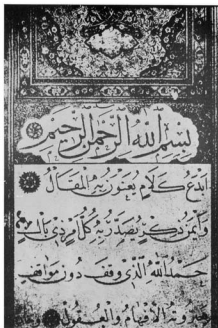 بسم الله الرحمن الرحيم
ابدع كلام يعنون به المقال
وايمن ذكر يصدر به كل امر ذي بال
حمد الله الذي وقف دون مواقف
الافهام والعقول